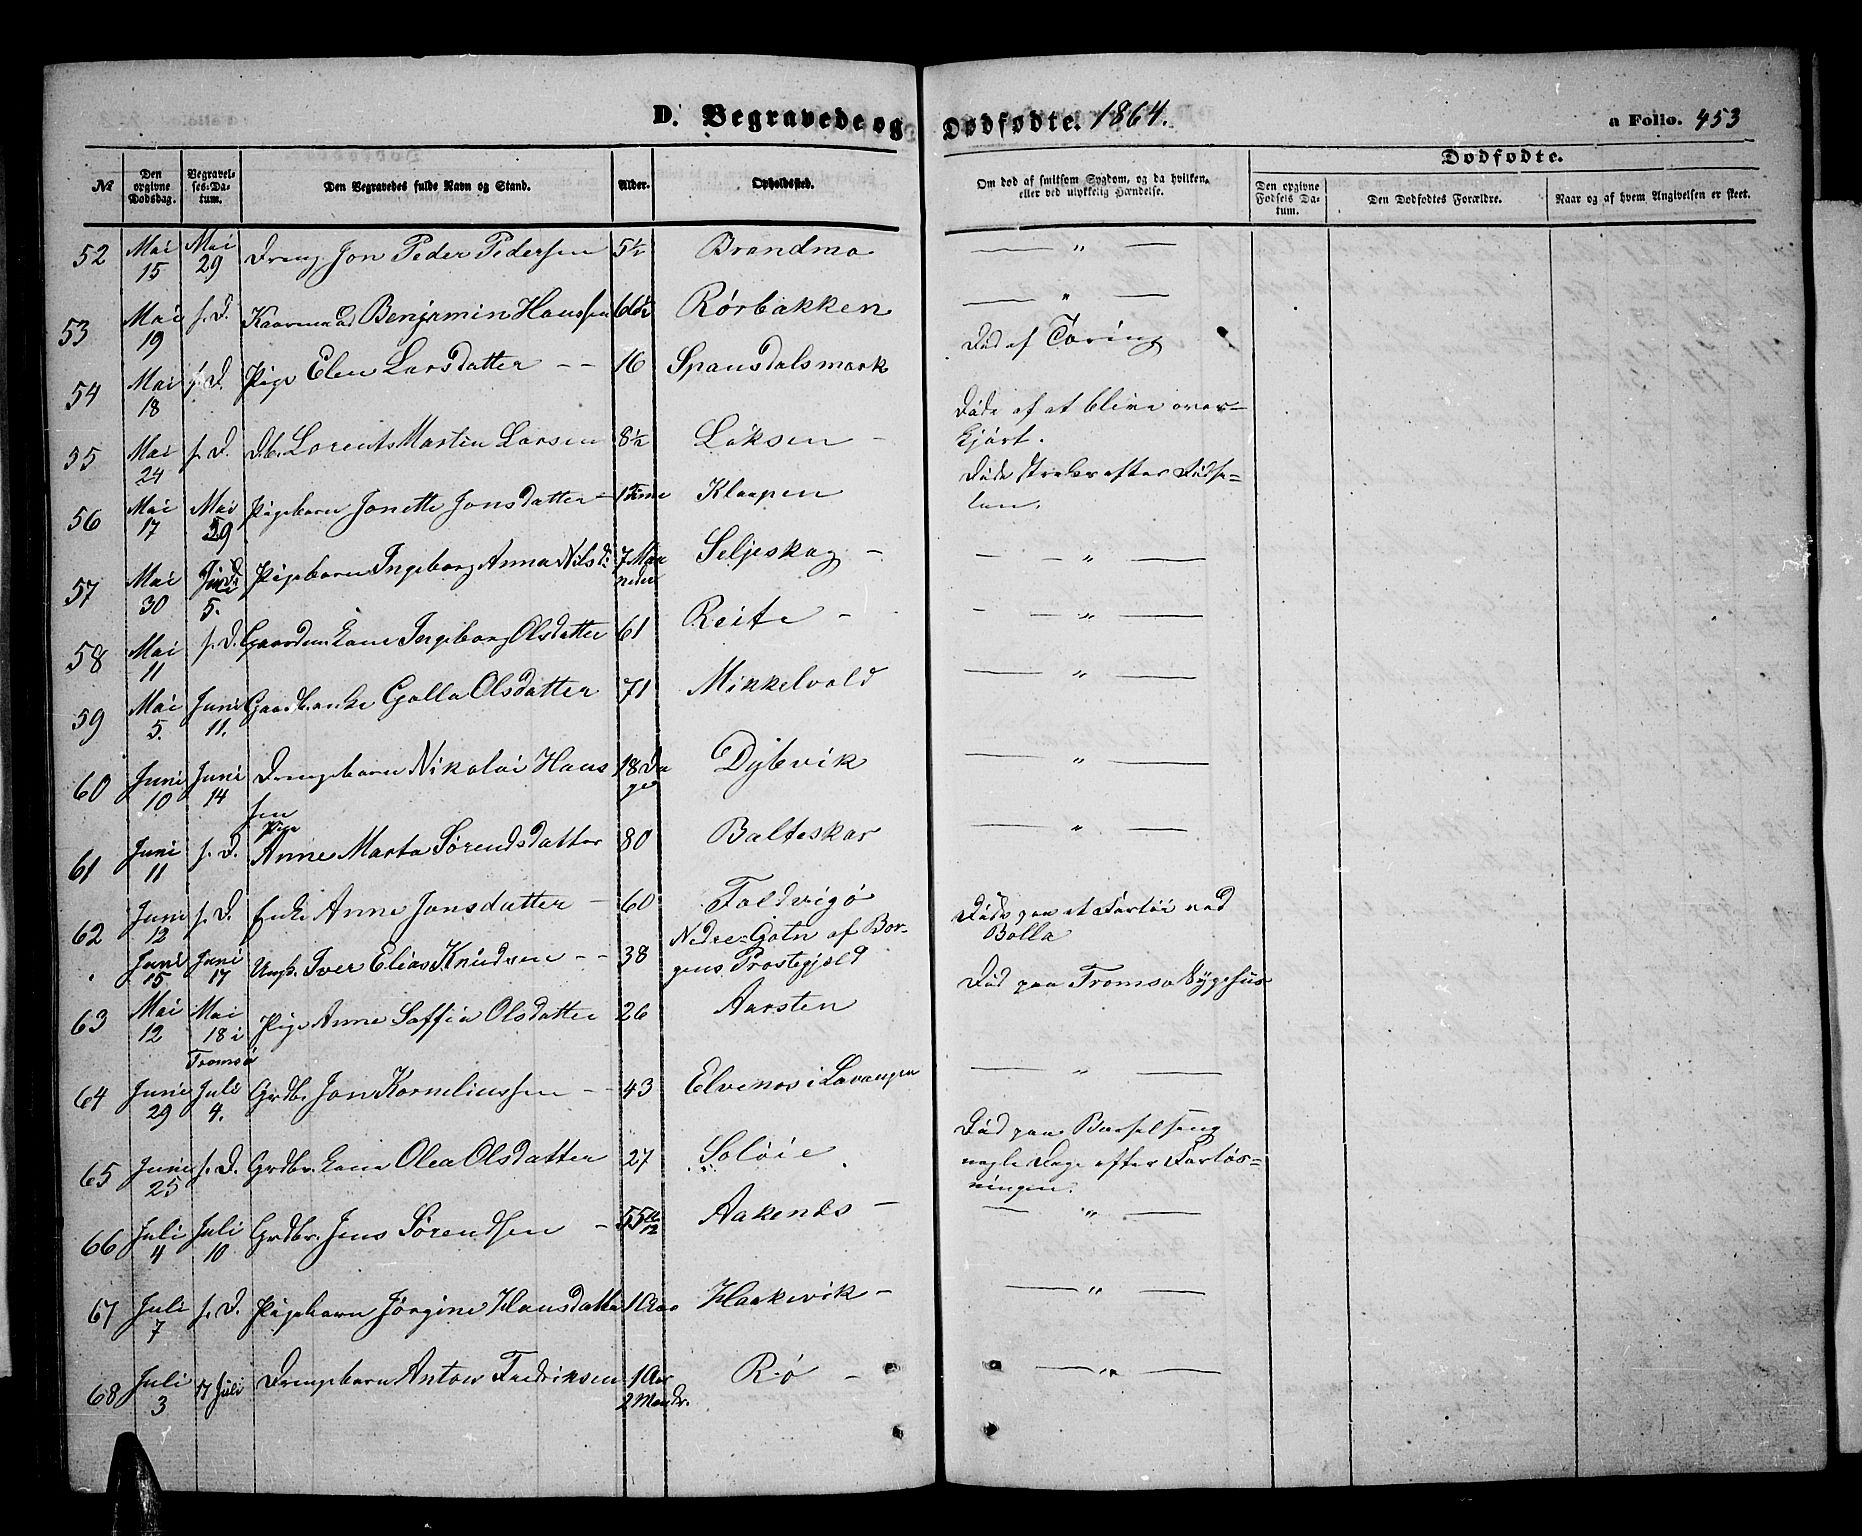 D. Begravede og Dødfødte. 1864. a Folio. 453
No. Den opgivne Dødsdag. Begravelses-Datum. Den Begravedes fulde Navn og Stand. Alder. Opholdssted. Om død af smitsom Sygdom, og da hvilken, eller ved ulykkelig Hændelse. Dødfødte. Den opgivne Fødsels Datum. Den Dødfødtes Forældre. Naar og af hvem Angivelsen er skeet.
52 Mai 15 Mai 29 Dreng Jon Peder Pedersen 5½ Brandmo — " —
53 Mai 19 s. D. Benjamin Hanssen Rørbakken — " —
54 Mai 18 s. D. Pige Elen Larsdatter - - 16 Spansdalsmark Død af Tæring
55 Mai 24 s. D. Db. Lorents Martin Larsen 8½ Løksen - Døde af at blive over=
kjørt.
56 Mai 17 Mai 29 Pigebarn Jonette Jonsdatter - 1 Time Klaapen Døde strax efter Fødse=
len.
57 Mai 30 Juni 5. Pigebarn Ingeborg Anna Nilsd: 7 Maa
neder Seljeskog - — " —
58 Mai 11 s. D. Gaardm. Kone Ingeborg Olsdatter 61 Reite - — " —
59 Mai 5. Juni 11. Gaardb. enke Golla Olsdatter 71 Mikkelvold — " —
60 Juni 10 Juni 14 Drengebarn Nikolai Hans
sen 18 Da
ge Dybvik — " —
61 Juni 11 s. D. Pige
Anne Marta Sørendsdatter 80 Balteskar — " —
62 Juni 12 s. D. Enke Anne Jonsdatter - 60 Foldvigø
. Juni 15. Juni 17 Ungk. Iver Elias Knudsen - - 38 Nedre=Gotn af Bor=
gens Prestegjeld Døde paa et Fartøi ved
Bolla
63 Mai 12 Mai 18 i Tromsø Pige Anne Soffia Olsdatter 26 Aarsten Død paa Tromsø Sygehus
64 Juni 29 Juli 4. Grdbr. Jon Korneliussen - - 43 Elvenes i Lavangen — " —
65 Juni 25 s. D. Grdbr. Kone Olea Olsdatter 27 Soløie Død paa Barselseng
nogle Dage efter Forløs=
ningen.
66 Juli 4 Juli 10 Grdbr. Jens Sørendsen - Aakenes - — " —
67 Juli 7 s. D. Pigebarn Jørgine Hansdatter 1 Aar Haakevik - — " —
68 Juli 3 17 Juli Drengebarn Anton Fredriksen 1 Aar
2 Maadr. Rø - — " —